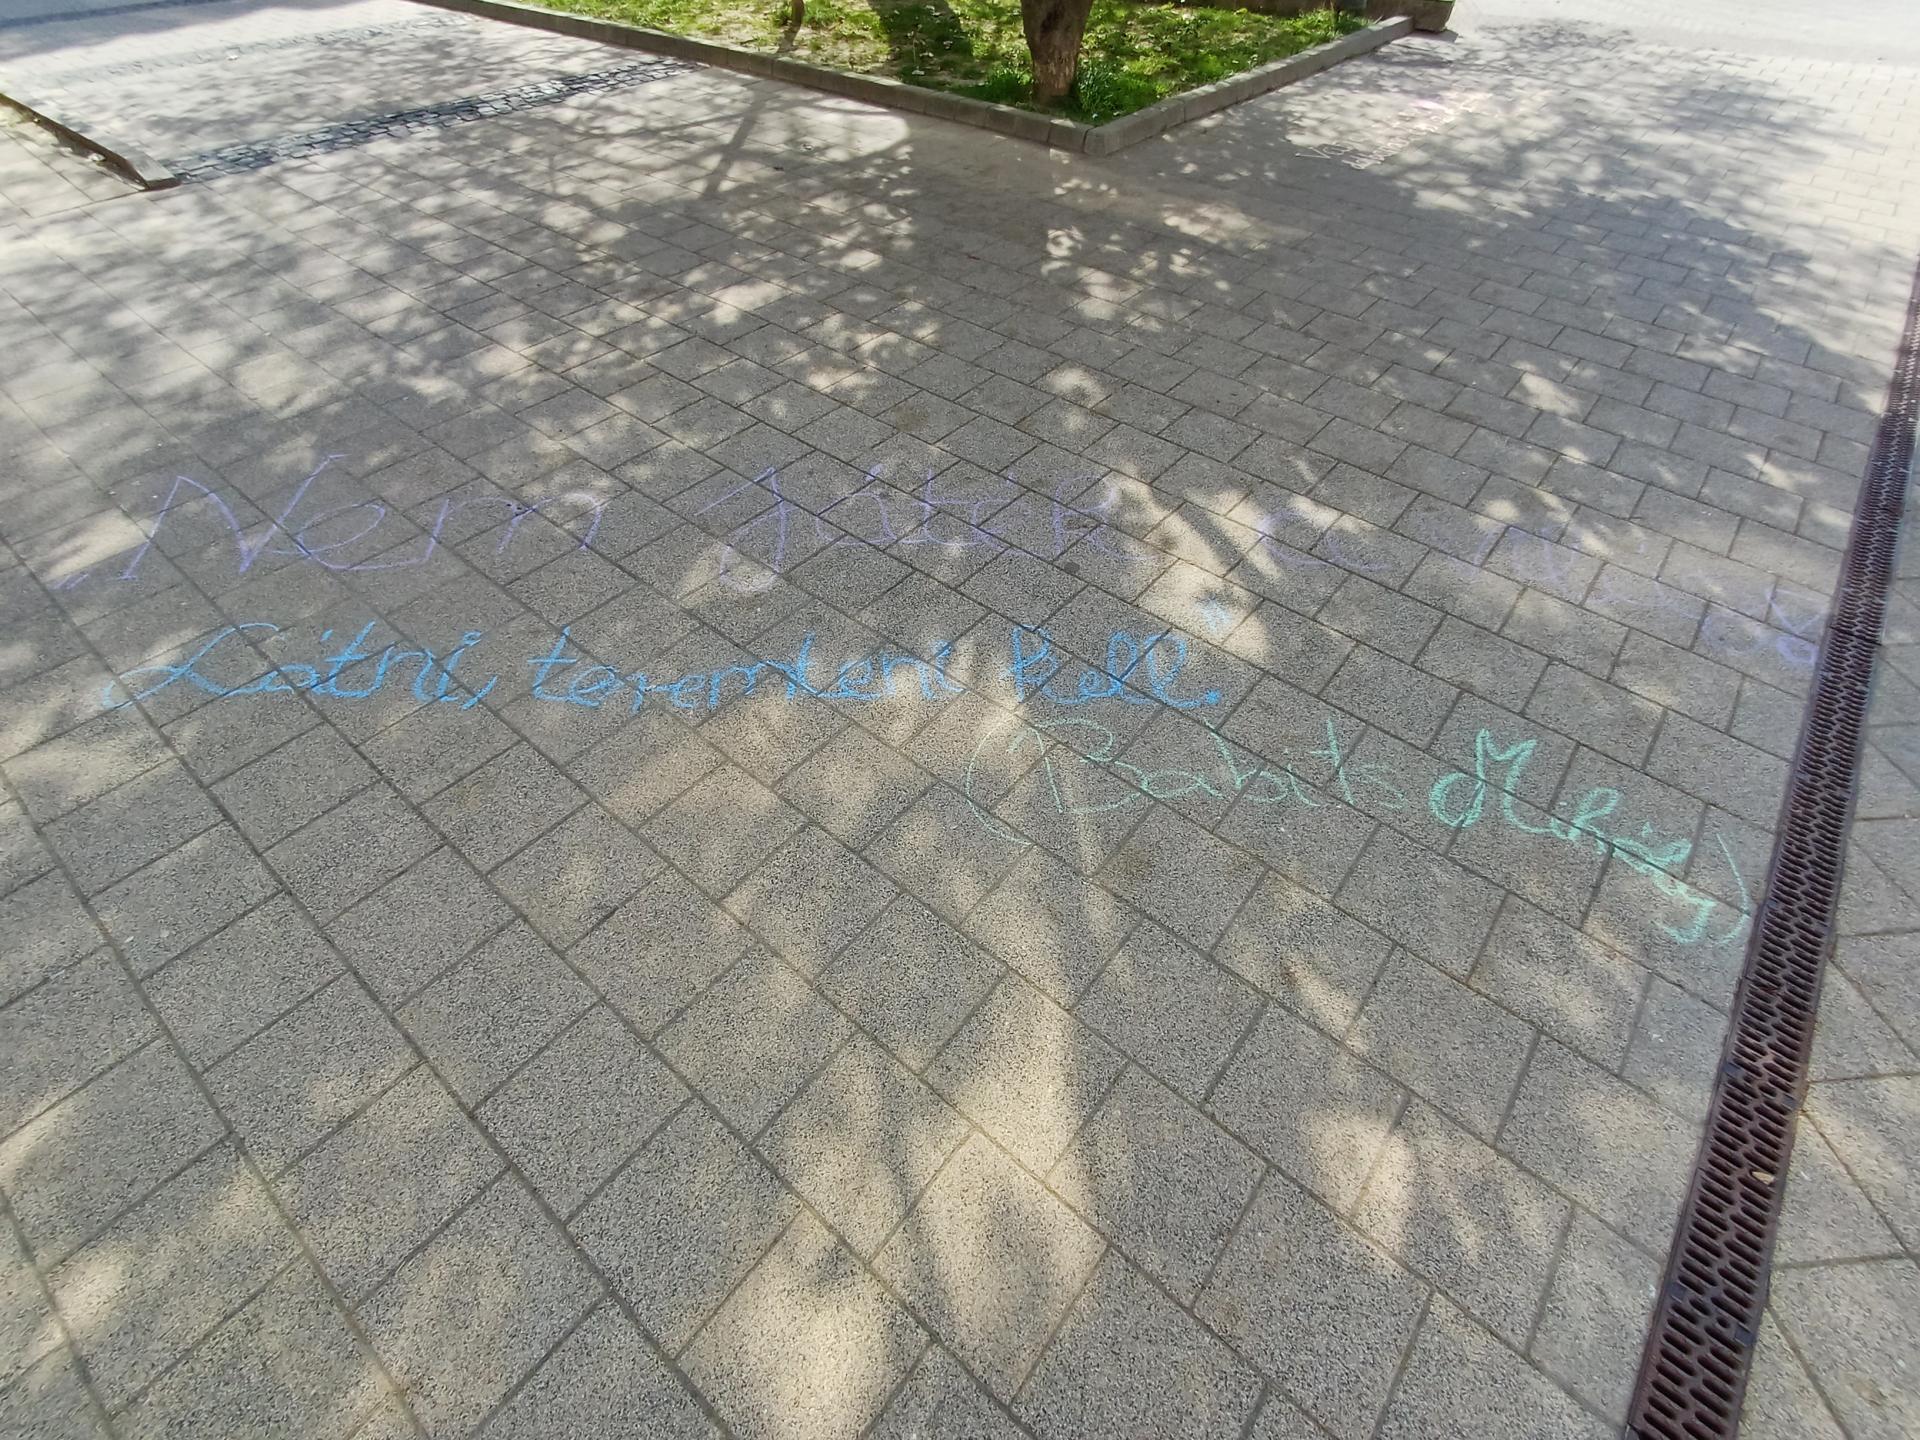 „Nem játék a világ
Látni, teremteni kell."
(Babits Mihály)